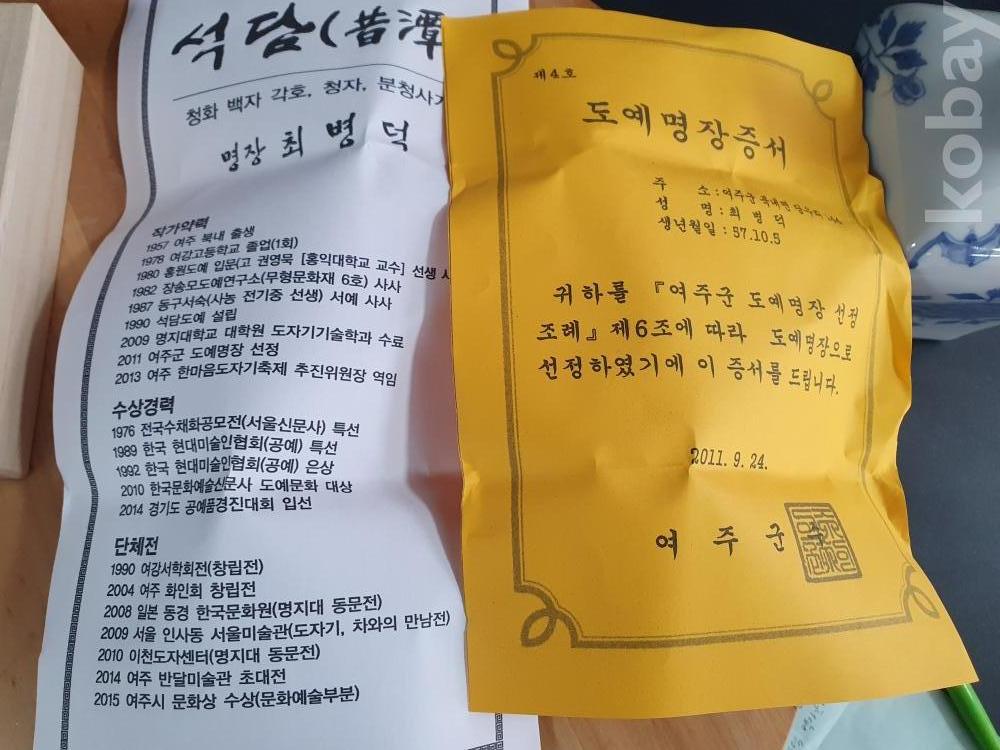 석담(昔潭
청화 백자 각호, 청자, 분청사기
명장 최 병 덕
작가약력
1957 여주 북내 출생
1978 여강고등학교 졸업(1회)
1980 홍원도예 입문(고 권영묵 [홍익대학교 교수] 선생 사
1982 장송모도예연구소(무형문화재 6호) 사사
1987 동구서숙(사농 전기중 선생) 서예 사사
1990 석담도예 설립
2009 명지대학교 대학원 도자기기술학과 수료
2011 여주군 도예명장 선정
2013 여주 한마음도자기축제 추진위원장 역임
수상경력
1976 전국수채화공모전(서울신문사) 특선
1989 한국 현대미술인협회(공예) 특선
1992 한국 현대미술인협회(공예) 은상
2010 한국문화예술신문사 도예문화 대상
2014 경기도 공예품경진대회 입선
단체전
1990 여강서학회전(창립전)
2004 여주 화인회 창립전
2008 일본 동경 한국문화원(명지대 동문전)
2009 서울 인사동 서울미술관(도자기, 차와의 만남전)
2010 이천도자센터(명지대 동문전)
2014 여주 반달미술관 초대전
2015 여주시 문화상 수상(문화예술부분)
제4호
도예명장증서
주 소 : 여주군 북내면
성 명 : 최 병 덕
생년월일 : 57.10.5
귀하를 『여주군 도예명장 선정
조례』 제6조에 따라 도예명장으로
선정하였기에 이 증서를 드립니다.
2011. 9. 24.
여 주 군 수
kobay